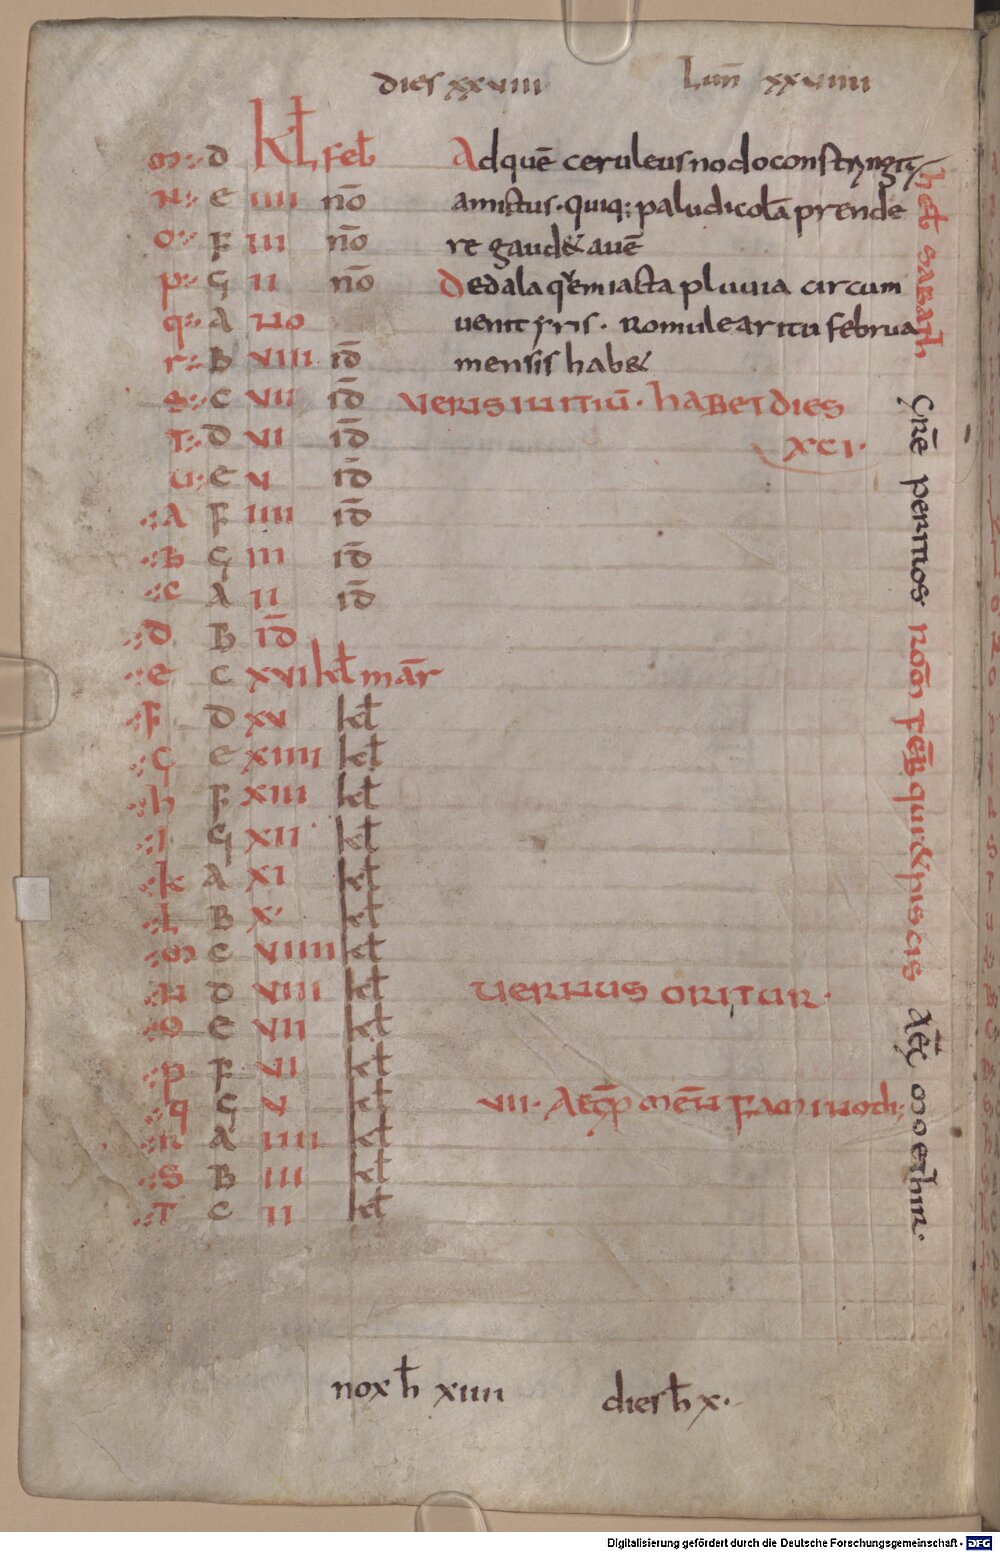 dies xxviii Lun̄ xxviiii
m D KL Feb Adquē ceruleus nodo constringit
N E IIII nō amictus · quiq; paludicolā prende
O F III nō re gaud& auē
P G II nō Dedala quem iacta pluuia circum
q A NO uenit yris · Romule aritu februa
r B VIII id mensis hab&
S C VII id VERIS INITIŪ · HABET DIES
T D VI id XCI ·
U E V id
A F IIII id
B G III id
C A II id
D B ID
E C XVI kl mār
F D XV kl
G E XIIII kl
h F XIII kl
I G XII kl
K A XI kl
L B X kl
M C VIIII kl
N D VIII kl UERNUS ORITUR ·
O E VII kl
P F VI kl
q G V kl VII · AEGP MEN̄ FAMINOCH;
A IIII kl
S B III kl
T C II kl
nox h xiiii dies h x ·
heƀ SABATH
GRE PERITIOS ROM̄ FEB̄ qui & piscis AEG MOETHIR ·
Digitalisierung gefördert durch die Deutsche Forschungsgemeinschaft - DFG